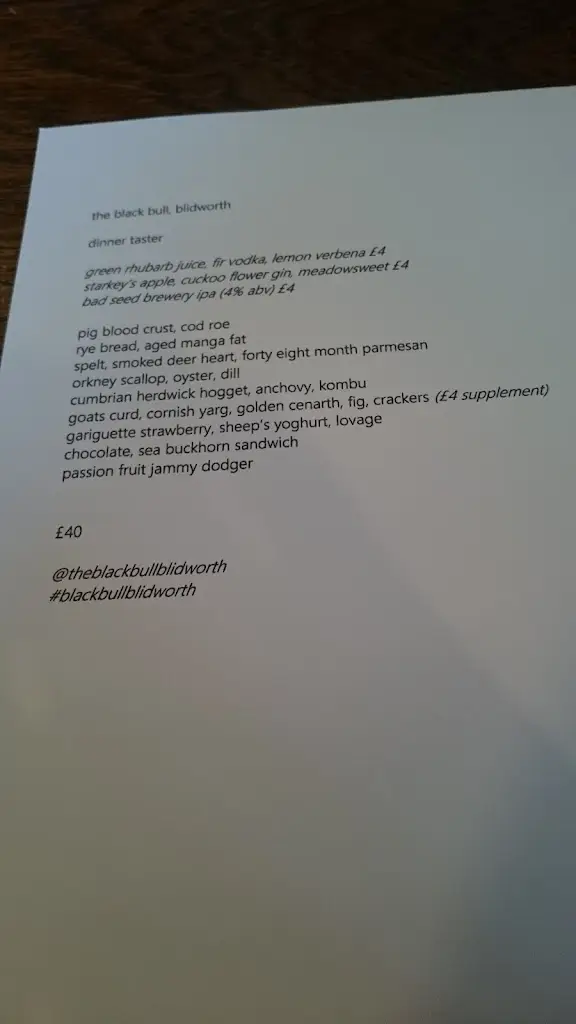 the black bull, blidworth
dinner taster
green rhubarb juice, fir vodka, lemon verbena £4
starkey's apple, cuckoo flower gin, meadowsweet £4
bad seed brewery ipa (4% abv) £4
pig blood crust, cod roe
rye bread, aged manga fat
spelt, smoked deer heart, forty eight month parmesan
orkney scallop, oyster, dill
cumbrian herdwick hogget, anchovy, kombu
goats curd, cornish yarg, golden cenarth, fig, crackers (£4 supplement)
gariguette strawberry, sheep's yoghurt, lovage
chocolate, sea buckhorn sandwich
passion fruit jammy dodger
£40
@theblackbullblidworth
#blackbullblidworth